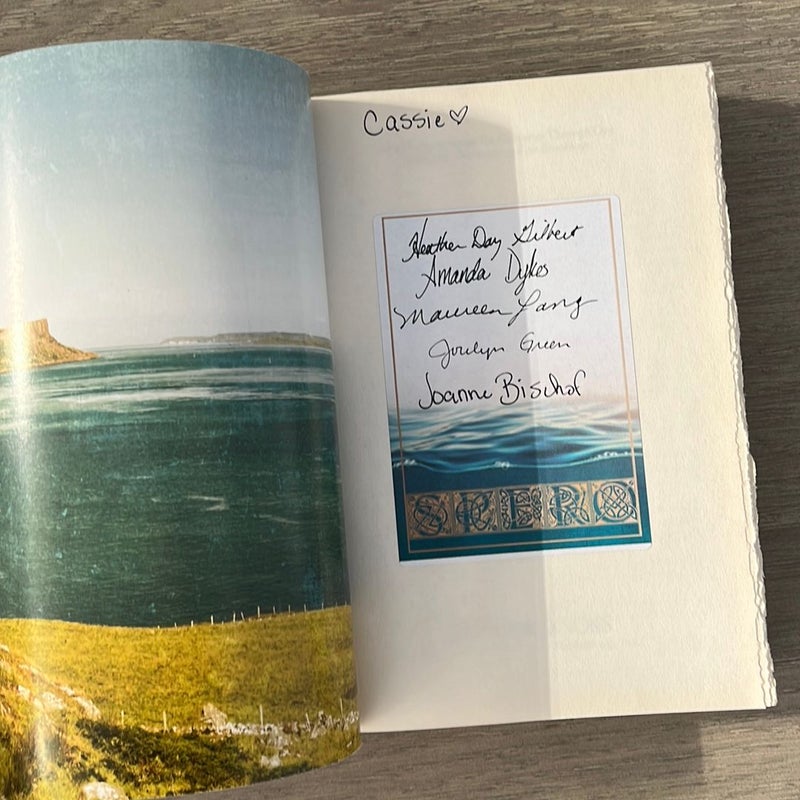 Cassie♡
Heather Day Gilbert
Amanda Dykes
Maureen Lang
Jocelyn Green
Joanne Bischof
SPERO